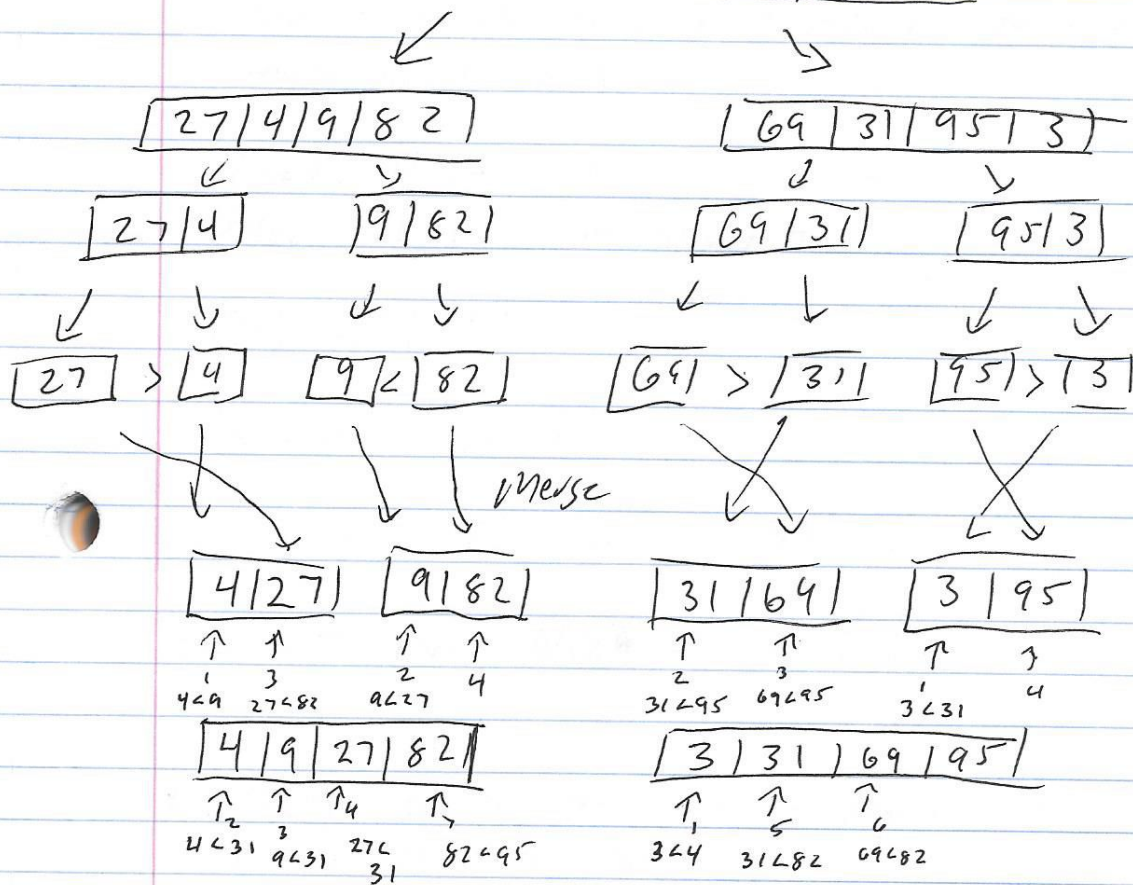 27 | 4 | 9 | 82 69 | 31 | 95 | 3
27 | 4 9 | 82 69 | 31 95 | 3
27 > 4 9 < 82 69 > 31 95 > 3
Merge
4 | 27 9 | 82 31 | 69 3 | 95
1 3 2 4 2 3 1 4
4<9 27<82 9<27 31<95 69<95 3<31
4 | 9 | 27 | 82 3 | 31 | 69 | 95
2 3 4 7 1 5 6
4<31 9<31 27< 82<95 3<4 31<82 69<82
31